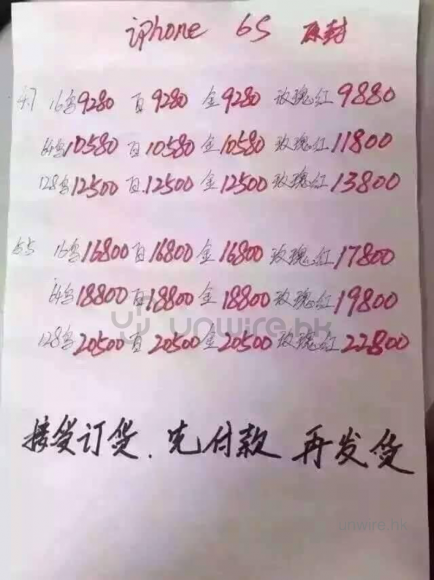 iphone 6S 原封
4.7 16黑9280 白9280 金9280 玫瑰红9880
64黑10580 白10580 金10580 玫瑰红11800
128黑12500 白12500 金12500 玫瑰红13800
5.5 16黑16800 白16800 金16800 玫瑰红17800
64黑18800 白18800 金18800 玫瑰红19800
unwire.hk
128黑20500 白20500 金20500 玫瑰红22800
接货订货.先付款 再发货
unwire.hk